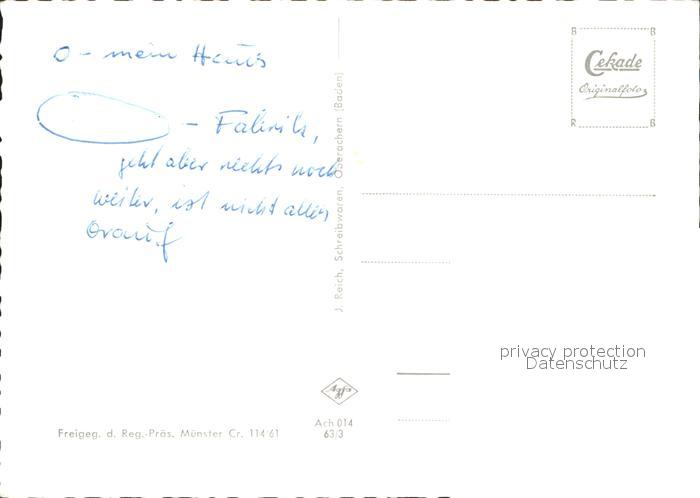 O - mein Haus
- Fabrik,
geht aber rechts noch
weiter, ist nicht alles
drauf
J. Reich, Schreibwaren, Oberachern (Baden)
Cekade
Originalfoto
privacy protection
Datenschutz
Agfa
Ach 014
63/3
Freigeg. d. Reg.-Präs. Münster Cr. 114/61